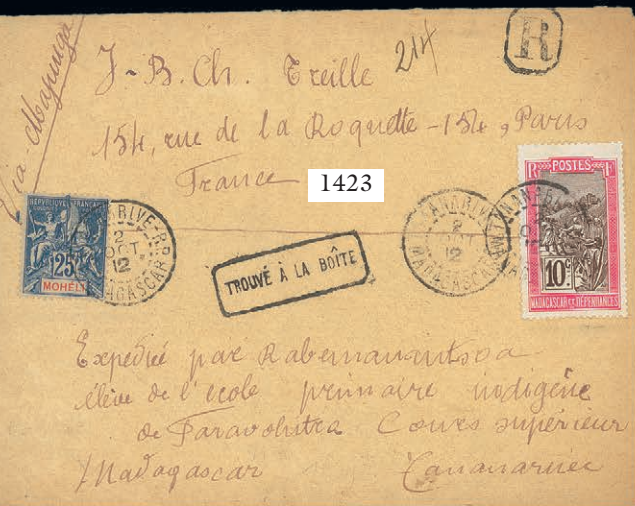 Via Majunga
J-B. Ch. Treille 214
R
154, rue de la Roquette - 154, Paris
France
1423
RÉPUBLIQUE FRANÇAISE
25
MOHÉLI
TANANARIVE-RP
2
OCT
12
MADAGASCAR
TROUVÉ À LA BOÎTE
TANANARIVE
2
OCT
12
MADAGASCAR
R F
POSTES
10c
MADAGASCAR ET DÉPENDANCES
Expédié par Rabemanantsoa
élève de l'école primaire indigène
de Faravohitra Cours supérieur
Madagascar Tananarive